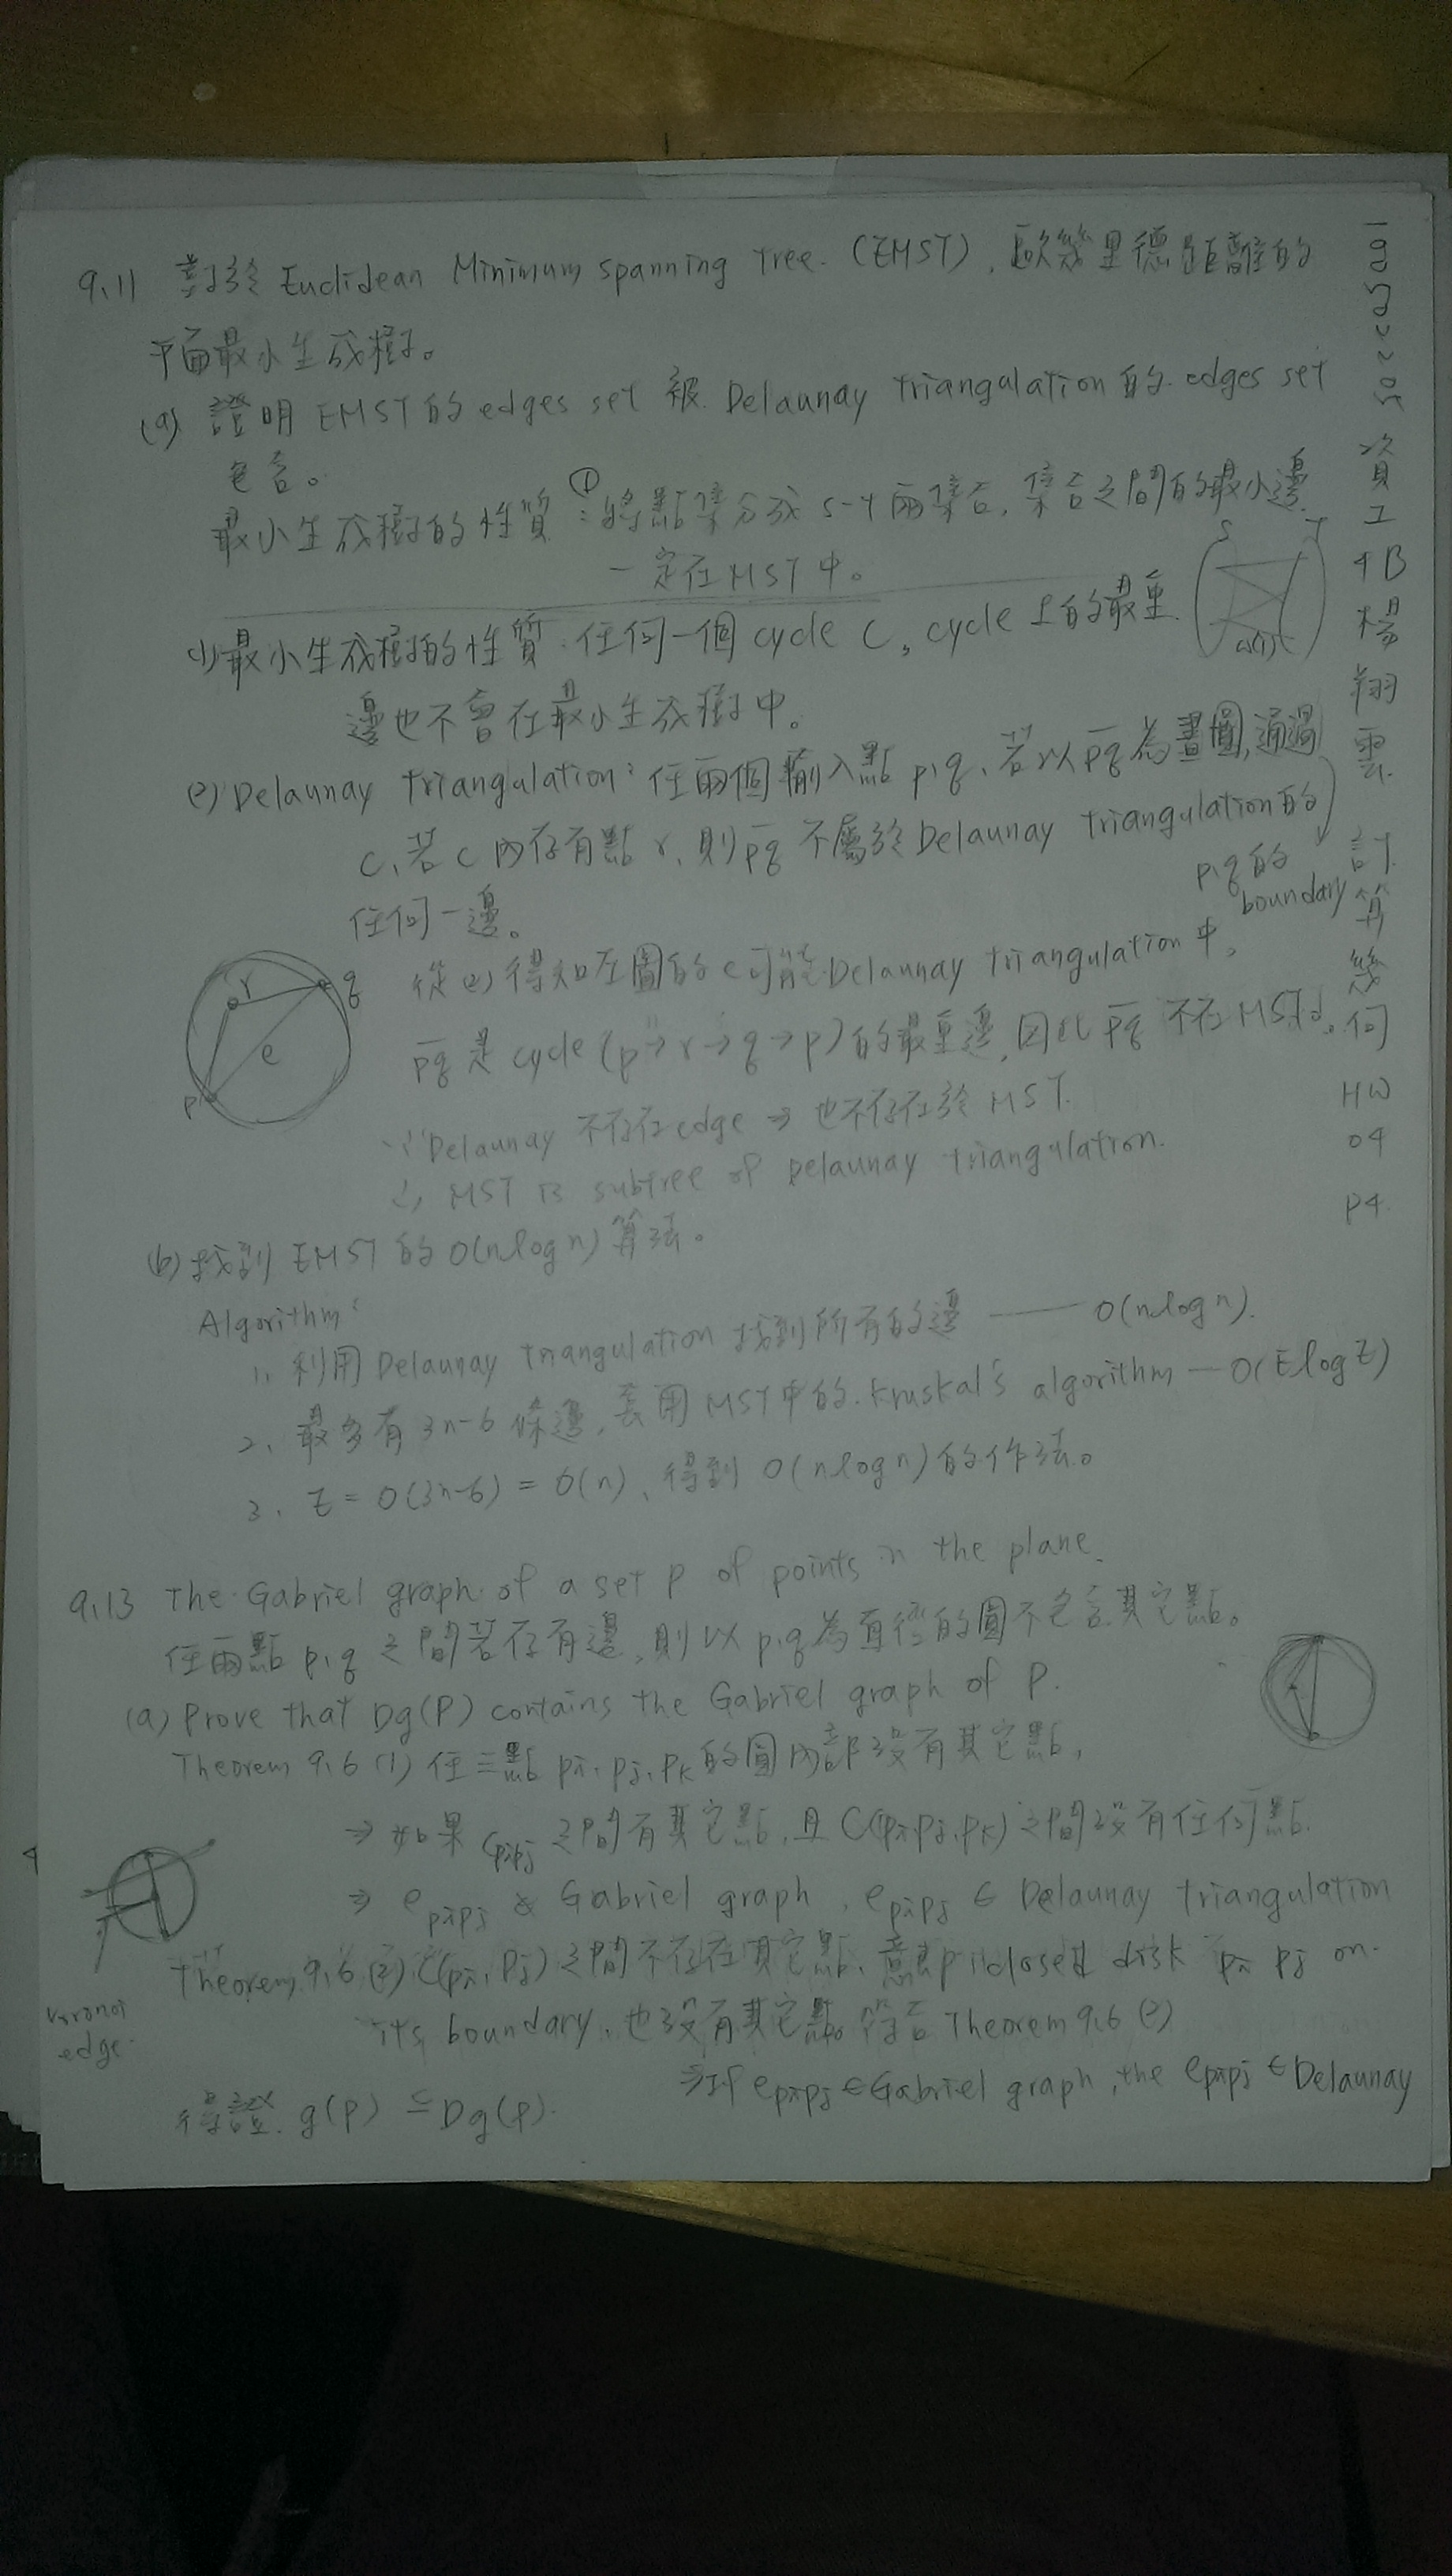 9.11 對於 Euclidean Minimum spanning Tree. (EMST), 歐幾里德距離的
平面最小生成樹。
(a) 證明 EMST的 edges set 被 Delaunay triangulation的 edges set
包含。
最小生成樹的性質: ① 將點集分成 S-T 兩集合, 集合之間的最小邊
一定在 MST 中。
S T
(1) 最小生成樹的性質. 任何一個 cycle C, cycle 上的最重
邊也不會在最小生成樹中。
(2) Delaunay triangulation: 任兩個輸入點 p,q, 若以 pq 為畫圓, 通過
p,q的 boundary
C, 若 C 內存有點 r, 則 pq 不屬於 Delaunay triangulation的
任何一邊。
r q e p
從(2)得知左圖的 e 可能 Delaunay triangulation 中,
pq 是 cycle (p→r→q→p) 的最重邊, 因此 pq 不在 MST中。
Delaunay 不存在 edge ⇒ 也不存在於 MST.
MST is subtree of Delaunay triangulation.
(b) 找到 EMST 的 O(nlogn) 算法。
Algorithm:
1. 利用 Delaunay triangulation 找到所有的邊 —— O(nlogn).
2. 最多有 3n-6 條邊, 套用 MST中的 Kruskal's algorithm — O(ElogE)
3. E = O(3n-6) = O(n), 得到 O(nlogn) 的作法。
9.13 The Gabriel graph of a set P of points in the plane.
任兩點 p,q 之間若存有邊, 則以 p,q為直徑的圓不包含其它點。
(a) Prove that Dg(P) contains the Gabriel graph of P.
Theorem 9.6 (1) 任三點 pi, pj, pk 的圓內部沒有其它點,
⇒ 如果 Cpipj 之間有其它點, 且 C(pi,pj,pk) 之間沒有任何點.
⇒ epipj ∉ Gabriel graph, epipj ∈ Delaunay triangulation
Theorem 9.6 (2) C(pi, pj) 之間不存在其它點, closed disk pi pj on
its boundary, 也沒有其它點。符合 Theorem 9.6 (2)
Voronoi
edge.
⇒ If epipj ∈ Gabriel graph, the epipj ∈ Delaunay
得證. g(p) ⊆ Dg(p).
資工4B 楊翔雲 計算幾何 HW 04 P4